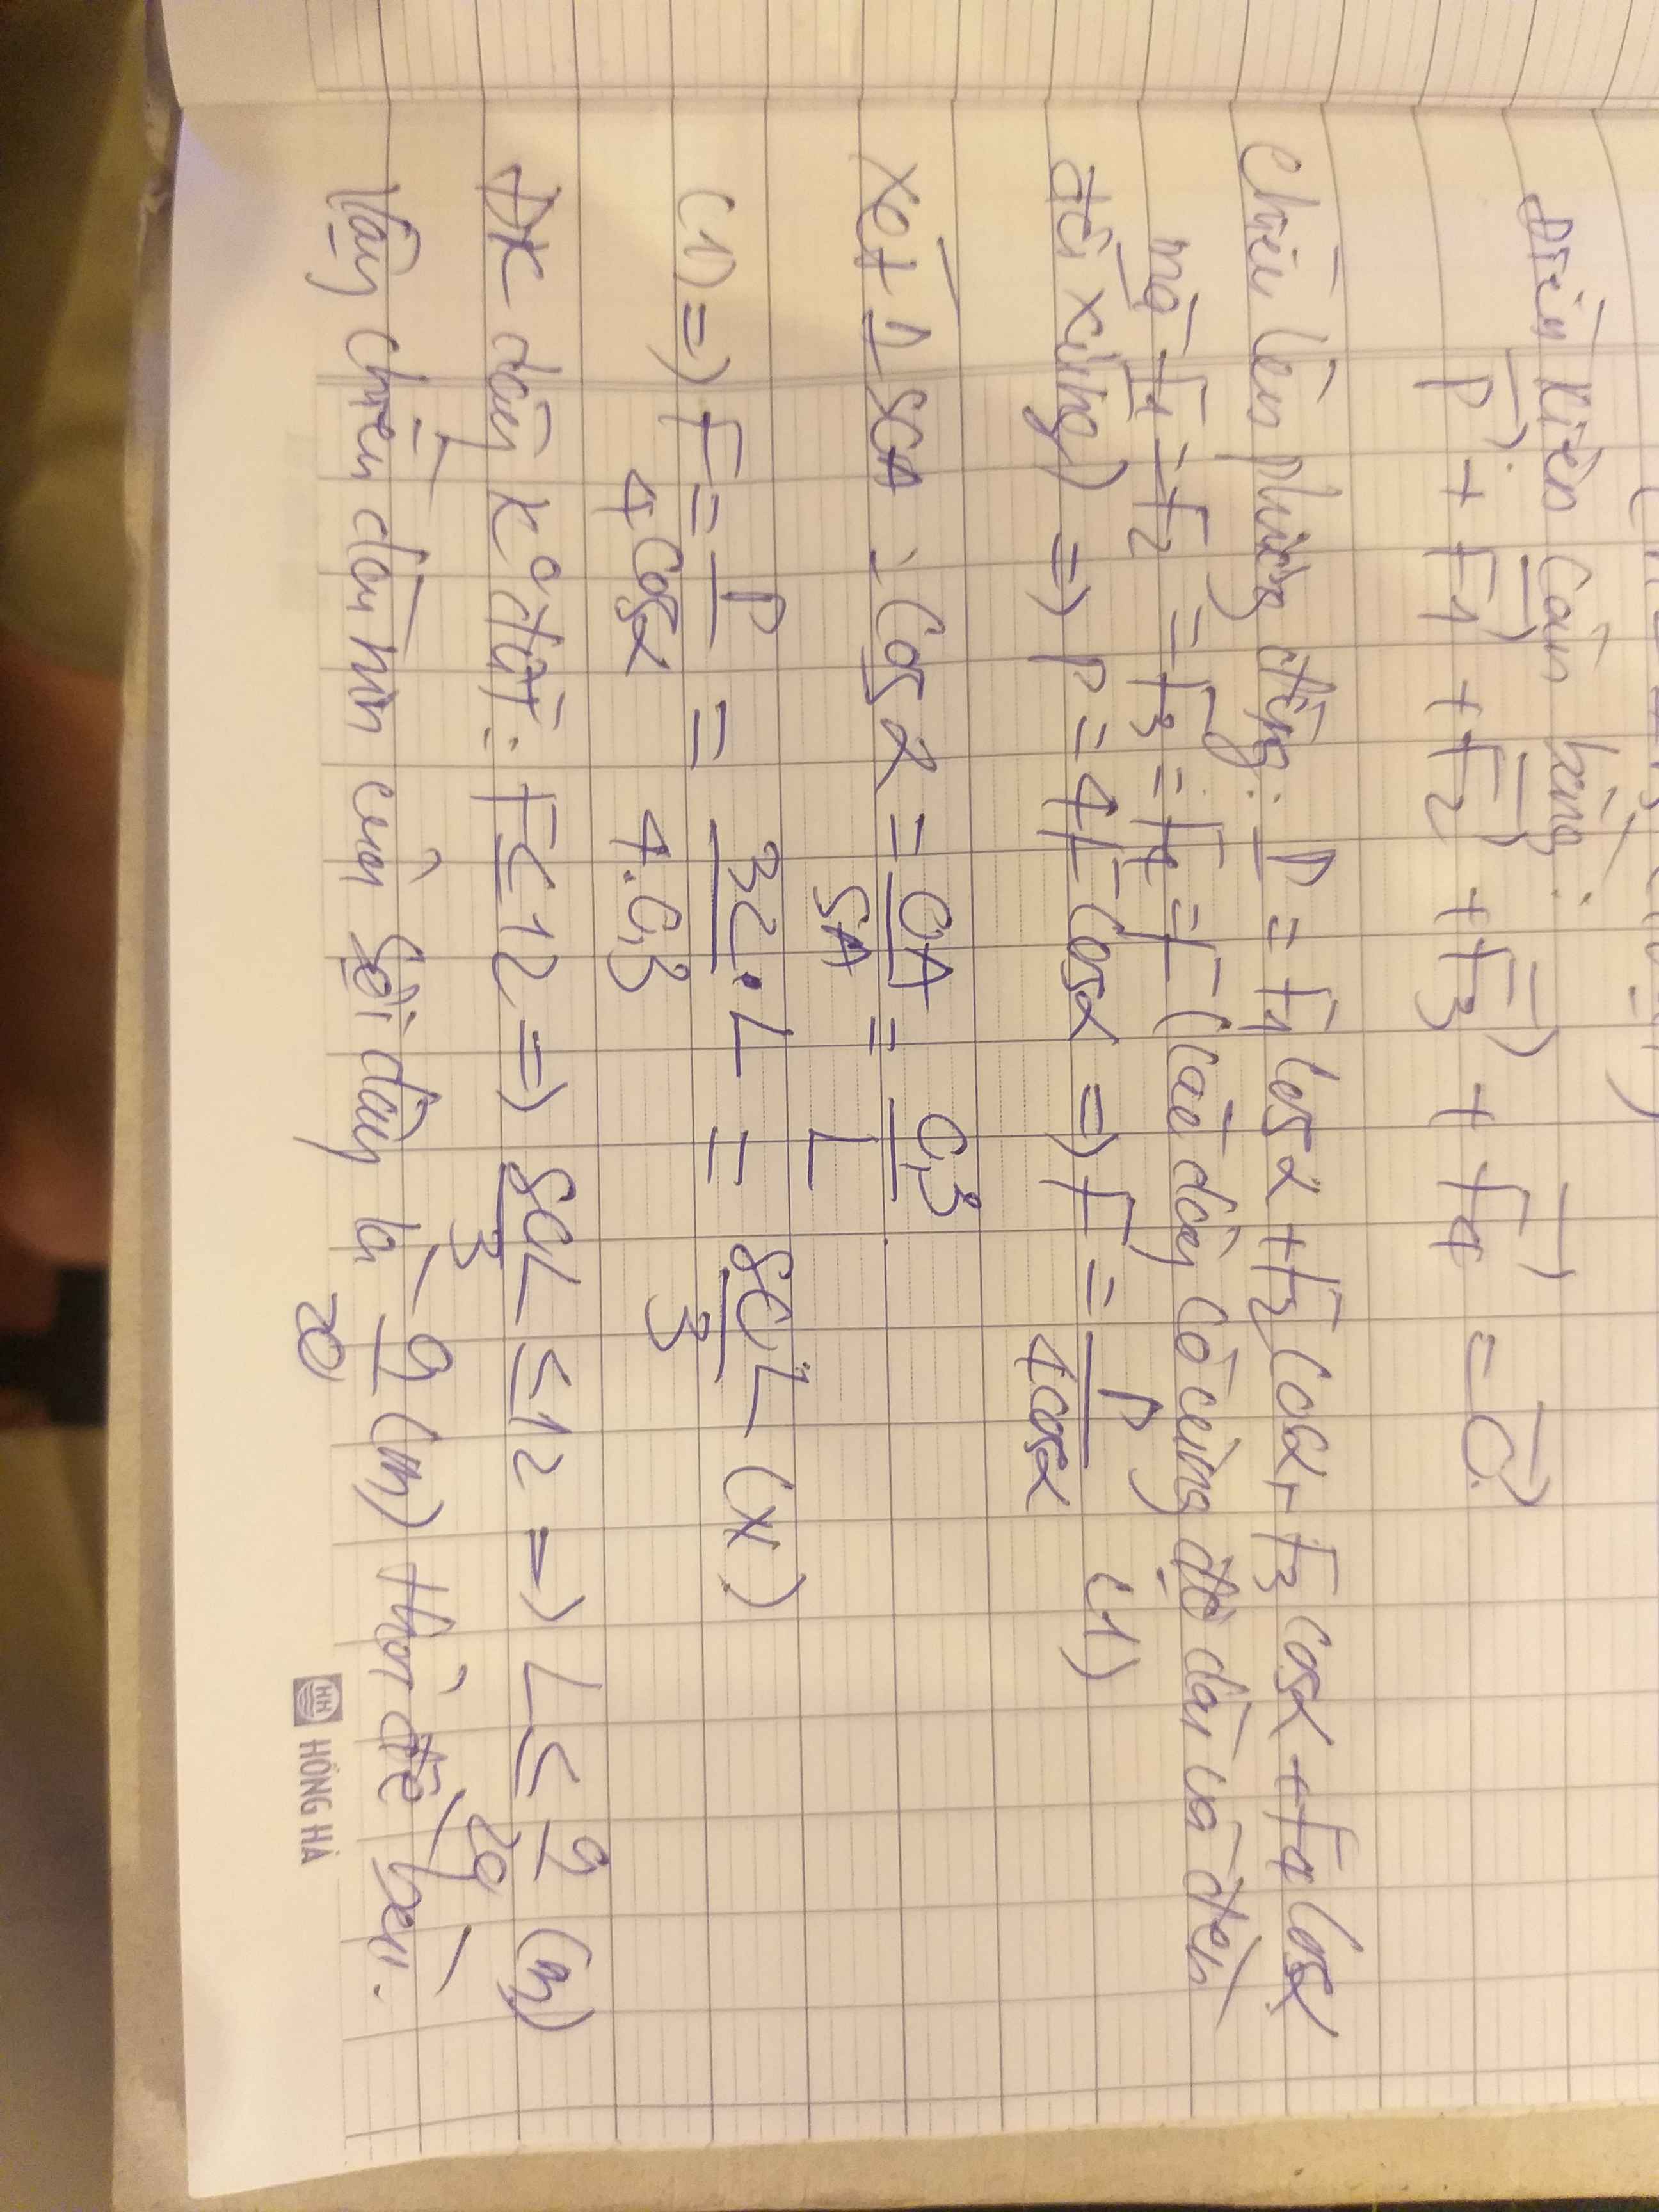 Điều kiện cân bằng:
P + F1 + F2 + F3 + F4 = 0
Chiếu lên phương đứng: P = F1 cosα + F2 cosα + F3 cosα + F4 cosα
mà F1 = F2 = F3 = F4 = F (các dây có cùng độ dài và đèn
đối xứng) => P = 4F cosα => F = P / 4cosα (1)
Xét Δ SOA: cosα = OA / SA = 0,3 / L
(1) => F = P / 4cosα = 32.L / 4.0,3 = 80L / 3 (N)
ĐK dây k° đứt: F ≤ 12 => 80L / 3 ≤ 12 => L ≤ 9 / 20 (m)
Vậy chiều dài min của sợi dây là 9 / 20 (m) thời để treo.
HỒNG HÀ